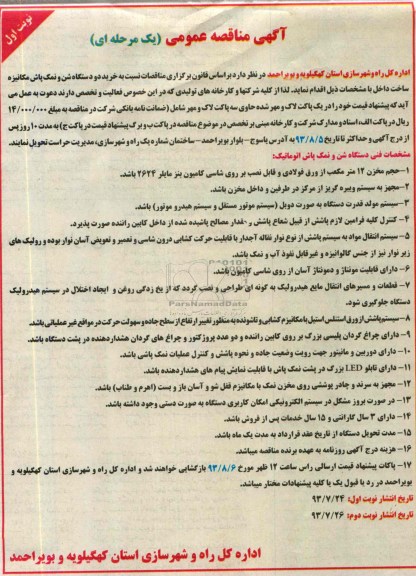 نوبت اول
آگهی مناقصه عمومی (یک مرحله ای)
اداره کل راه و شهرسازی استان کهگیلویه و بویراحمد در نظر دارد براساس قانون برگزاری مناقصات نسبت به خرید دو دستگاه شن و نمک پاش مکانیزه
ساخت داخل با مشخصات ذیل اقدام نماید. لذا از کلیه شرکتها و کارخانه های تولیدی که در این خصوص فعالیت و تخصص دارند دعوت به عمل می
آید که پیشنهاد قیمت خود را در یک پاکت لاک و مهر شده حاوی سه پاکت لاک و مهر شامل (ضمانت نامه بانکی شرکت در مناقصه به مبلغ ۱۴/۰۰۰/۰۰۰
ریال در پاکت الف، اسناد و مدارک شرکت و کارخانه مبنی بر تخصص در موضوع مناقصه در پاکت ب و برگ پیشنهاد قیمت در پاکت ج) به مدت ۱۰ روز پس
از درج آگهی و حداکثر تا تاریخ ۹۳/۸/۵ به آدرس یاسوج - بلوار بویراحمد - ساختمان شماره یک راه و شهرسازی، مدیریت حراست تحویل نمایند.
مشخصات فنی دستگاه شن و نمک پاش اتوماتیک:
۱- حجم مخزن ۱۲ متر مکعب از ورق فولادی و قابل نصب بر روی شاسی کامیون بنز مایلر ۲۶۲۴ باشد.
۲- مجهز به سیستم ویبره گریز از مرکز در طرفین و داخل مخزن باشد.
۳- سیستم مولد قدرت دستگاه به صورت دوبل (سیستم موتور مستقل و سیستم هیدرو موتور) باشد.
۴- کنترل کلیه فرامین لازم پاشش از قبیل شعاع پاشش و مقدار مصالح پاشیده شده از داخل کابین راننده صورت پذیرد.
۵- سیستم انتقال مواد به سیستم پاشش از نوع نوار نقاله آجدار با قابلیت حرکت کشابی درون شاسی و تعمیر و تعویض آسان نوار بوده و رولیک های
زیر نوار نیز از جنس گالوانیزه و غیرقابل نفوذ آب و نمک باشد.
۶- دارای قابلیت مونتاژ و دمونتاژ آسان از روی شاسی کامیون باشد.
۷- قطعات و مسیرهای انتقال مایع هیدرولیک به گونه ای طراحی و نصب گردد که از یخ زدگی روغن و ایجاد اختلال در سیستم هیدرولیک
دستگاه جلوگیری شود.
۸- سیستم پاشش از ورق استنلس استیل با مکانیزم کشابی و تاشونده به منظور تغییر ارتفاع از سطح جاده و سهولت حرکت در مواقع غیر عملیاتی باشد.
۹- دارای چراغ گردان پلیسی بزرگ بر روی کابین راننده و دو عدد پروژکتور و چراغ های گردان هشداردهنده در پشت دستگاه باشد.
۱۰- دارای دوربین و مانیتور جهت رویت وضعیت جاده و نحوه پاشش و کنترل عملیات نمک پاشی باشد.
۱۱- دارای تابلو LED بزرگ در پشت نمک پاش با قابلیت نمایش پیام های هشداردهنده باشد.
۱۲- مجهز به سرند و چادر پوششی روی مخزن نمک با مکانیزم قفل شو و آسان باز و بست (اهرم و طناب) باشد.
۱۳- در صورت بروز مشکل در سیستم الکترونیکی امکان کاربری دستگاه به صورت دستی وجود داشته باشد.
۱۴- دارای ۳ سال گارانتی و ۱۵ سال خدمات پس از فروش باشد.
۱۵- مدت تحویل دستگاه از تاریخ عقد قرارداد به مدت یک ماه باشد.
۱۶- هزینه درج آگهی روزنامه به عهده برنده مناقصه میباشد.
۱۷- پاکات پیشنهاد قیمت ارسالی راس ساعت ۱۲ ظهر مورخ ۹۳/۸/۶ بازگشایی خواهند شد و اداره کل راه و شهرسازی استان کهگیلویه و
بویراحمد در رد یا قبول یک یا کلیه پیشنهادات مختار میباشد.
تاریخ انتشار نوبت اول: ۹۳/۷/۲۴
تاریخ انتشار نوبت دوم: ۹۳/۷/۲۶
اداره کل راه و شهرسازی استان کهگیلویه و بویراحمد